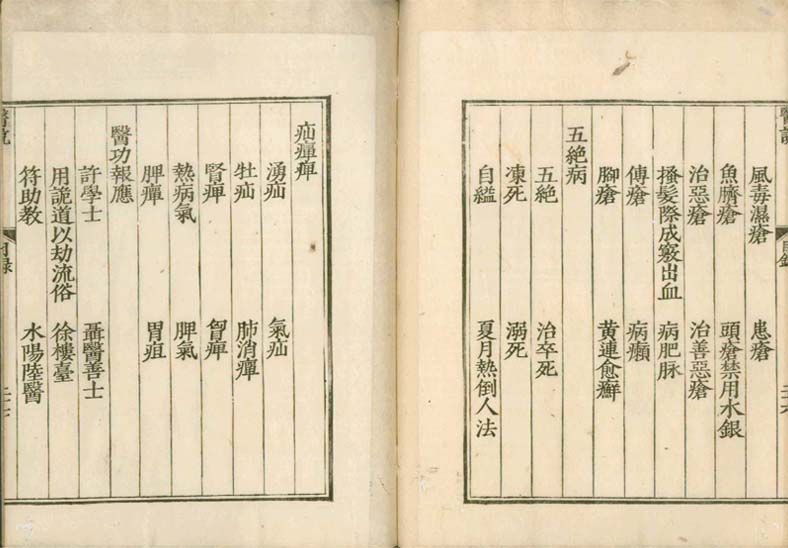 風毒濕瘡 患瘡
魚臍瘡 頭瘡禁用水銀
治惡瘡 治善惡瘡
搔髮際成竅出血 病肥脉
傅瘡 病癩
腳瘡 黃連愈癬
五絕病
五絕 治卒死
凍死 溺死
自縊 夏月熱倒人法
疝癉痺
湧疝 氣疝
牡疝 肺消癉
腎痺 胷痺
熱病氣 脾氣
脾癉 胃疽
醫功報應
許學士 聶醫善士
用詭道以劫流俗 徐樓臺
符助教 水陽陸醫
醫說 目錄